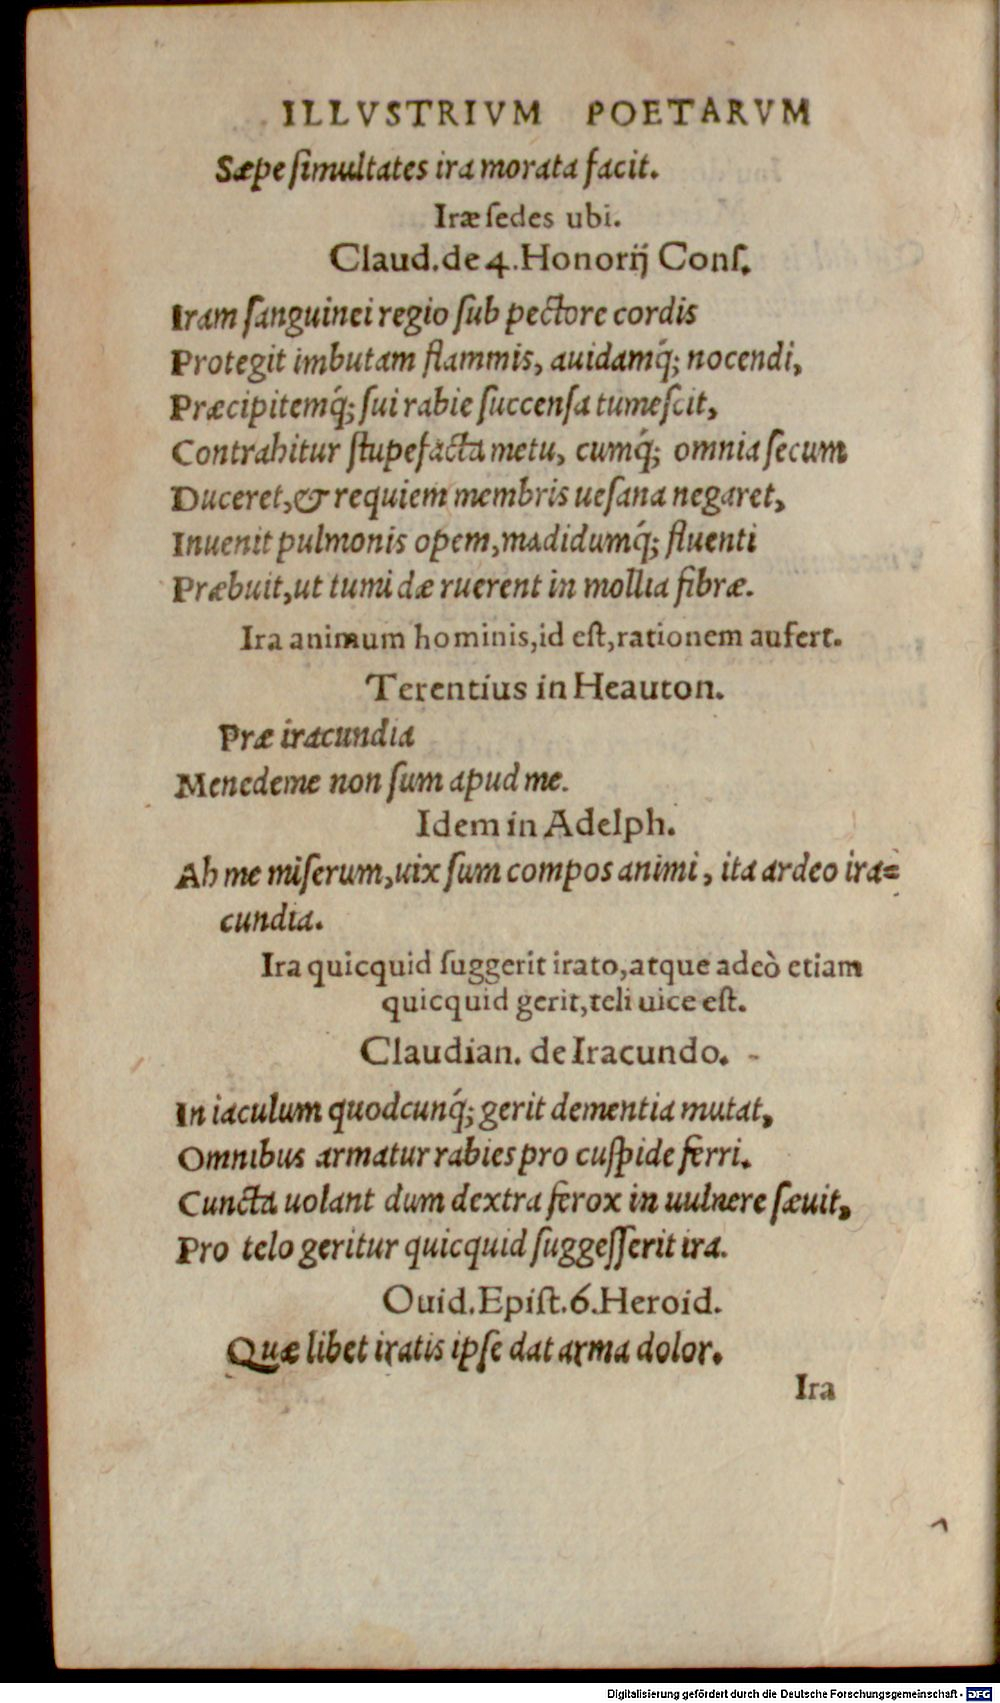 ILLVSTRIVM POETARVM
Sæpe ſimultates ira morata facit.
Iræ ſedes ubi.
Claud. de 4. Honorij Conſ.
Iram ſanguinei regio ſub pectore cordis
Protegit imbutam flammis, auidamq́; nocendi,
Præcipitemq́; ſui rabie ſuccenſa tumeſcit,
Contrahitur ſtupefacta metu, cumq́; omnia ſecum
Duceret, & requiem membris ueſana negaret,
Inuenit pulmonis opem, madidumq́; fluenti
Præbuit, ut tumidæ ruerent in mollia fibræ.
Ira animum hominis, id eſt, rationem aufert.
Terentius in Heauton.
Præ iracundia
Menedeme non ſum apud me.
Idem in Adelph.
Ah me miſerum, uix ſum compos animi, ita ardeo ira=
cundia.
Ira quicquid ſuggerit irato, atque adeò etiam
quicquid gerit, teli uice eſt.
Claudian. de Iracundo.
In iaculum quodcunq́; gerit dementia mutat,
Omnibus armatur rabies pro cuſpide ferri.
Cuncta uolant dum dextra ferox in uulnere ſæuit,
Pro telo geritur quicquid ſuggeſſerit ira.
Ouid. Epiſt. 6. Heroid.
Quæ libet iratis ipſe dat arma dolor.
Ira
Digitalisierung gefördert durch die Deutsche Forschungsgemeinschaft - DFG